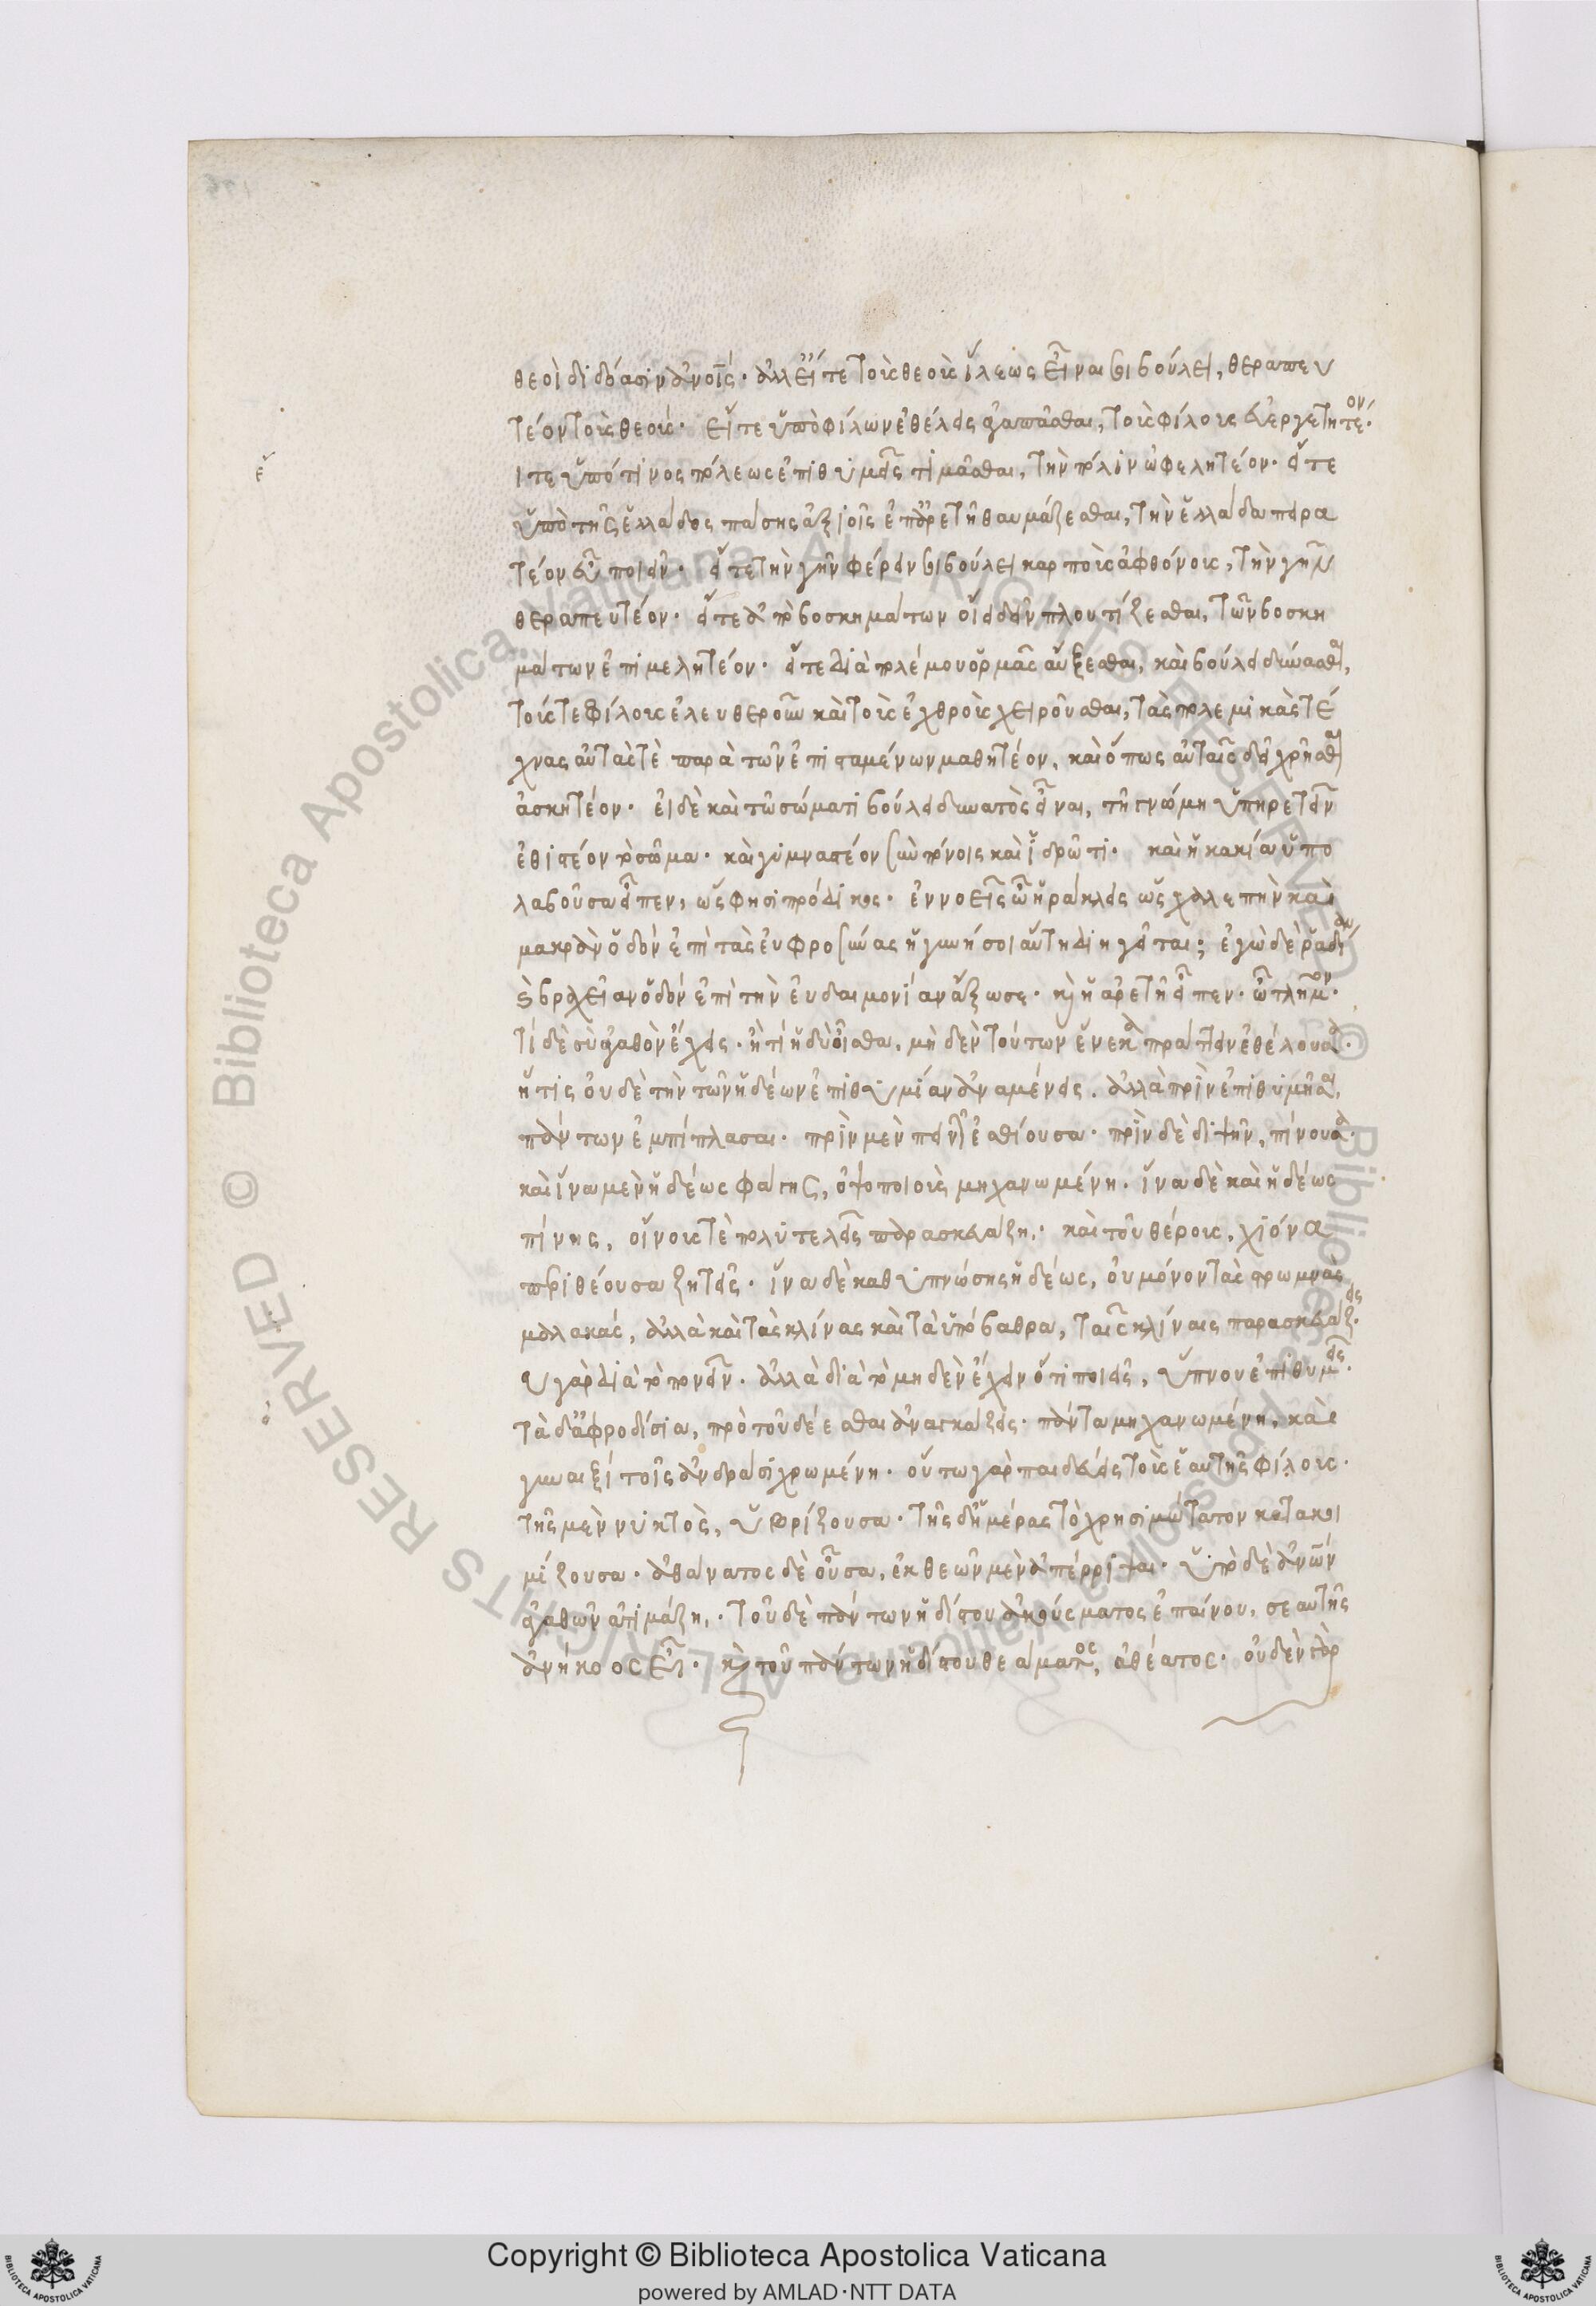 θεοὶ διδόασιν ἀνοις. ἀλλ εἴτε τοὺς θεοὺς ἵλεως εἶναί σοι βούλει, θεραπευ
τέον τοὺς θεούς. εἴτε ὑπὸ φίλων ἐθέλεις ἀγαπᾶσθαι, τοὺς φίλους εὐεργετητέον.
ιτε ὑπό τινος πόλεως ἐπιθυμεῖς τιμᾶσθαι, τὴν πόλιν ὠφελητέον. εἴτε
ὑπὸ τῆς ἑλλάδος πάσης ἀξιοῖς ἐπ ἀρετῇ θαυμάζεσθαι, τὴν ἑλλάδα πειρα
τέον εὖ ποιεῖν. εἴτε τὴν γῆν φέρειν σοι βούλει καρποὺς ἀφθόνους, τὴν γῆν
θεραπευτέον. εἴτε ἀπὸ βοσκημάτων οἴει δεῖν πλουτίζεσθαι, τῶν βοσκη
μάτων ἐπιμελητέον. εἴτε διὰ πολέμου ὁρμᾶς αὔξεσθαι, καὶ βούλει δύνασθαι,
τούς τε φίλους ἐλευθεροῦν καὶ τοὺς ἐχθροὺς χειροῦσθαι, τὰς πολεμικὰς τέ
χνας αὐτάς τὲ παρὰ τῶν ἐπισταμένων μαθητέον, καὶ ὅπως αὐταῖς δεῖ χρῆσθαι
ἀσκητέον. εἰ δὲ καὶ τῷ σώματι βούλει δυνατὸς εἶναι, τῇ γνώμῃ ὑπηρετεῖν
ἐθιστέον τὸ σῶμα. καὶ γυμναστέον σὺν πόνοις καὶ ἱδρῶτι. καὶ ἡ κακία ὑπο
λαβοῦσα εἶπεν, ὥς φησι πρόδικος. ἐννοεῖς ὦ ἡράκλεις ὡς χαλεπὴν καὶ
μακρὰν ὁδὸν ἐπὶ τὰς εὐφροσύνας ἡ γυνή σοι αὕτη διηγεῖται; ἐγὼ δὲ ῥαδίαν
καὶ βραχεῖαν ὁδὸν ἐπὶ τὴν εὐδαιμονίαν ἄξω σε. καὶ ἡ ἀρετὴ εἶπεν. ὦ τλῆμον.
τί δὲ σὺ ἀγαθὸν ἔχεις. ἢ τί ἡδὺ οἶσθα, μηδὲν τούτων ἕνεκα πράττειν ἐθέλουσα.
ἥτις οὐδὲ τὴν τῶν ἡδέων ἐπιθυμίαν ἀναμένεις. ἀλλὰ πρὶν ἐπιθυμῆσαι,
πάντων ἐμπίπλασαι. πρὶν μὲν πεινῆν ἐσθίουσα. πρὶν δὲ διψῆν, πίνουσα.
καὶ ἵνα μὲν ἡδέως φάγης, ὀψοποιοὺς μηχανωμένη. ἵνα δὲ καὶ ἡδέως
πίνης, οἴνους τὲ πολυτελεῖς παρασκευάζη. καὶ τοῦ θέρους, χιόνα
περιθέουσα ζητεῖς. ἵνα δὲ καθυπνώσης ἡδέως, οὐ μόνον τὰς στρωμνὰς
μαλακάς, ἀλλὰ καὶ τὰς κλίνας καὶ τὰ ὑπόβαθρα, ταῖς κλίναις παρασκευάζεις.
υ γὰρ διὰ τὸ πονεῖν. ἀλλὰ διὰ τὸ μηδὲν ἔχειν ὅτι ποιεῖς, ὕπνου ἐπιθυμεῖς.
τὰ δ ἀφροδίσια, πρὸ τοῦ δέεσθαι ἀναγκάζεις. πάντα μηχανωμένη, καὶ
γυναιξί τοῖς ἀνδράσι χρωμένη. οὕτω γὰρ παιδεύεις τοὺς ἑαυτῆς φίλους.
τῆς μὲν νυκτὸς, ὑβρίζουσα. τῆς δ ἡμέρας τὸ χρησιμώτατον κατακοι
μίζουσα. ἀθάνατος δὲ οὖσα, ἐκ θεῶν μὲν ἀπέρριψαι. ὑπὸ δὲ ἀνων
ἀγαθῶν ἀτιμάζη. τοῦ δὲ πάντων ἡδίστου ἀκούσματος ἐπαίνου, σεαυτῆς
ἀνήκοος εἶ. καὶ τοῦ πάντων ἡδίστου θεάματος, ἀθέατος. οὐδὲν γὰρ